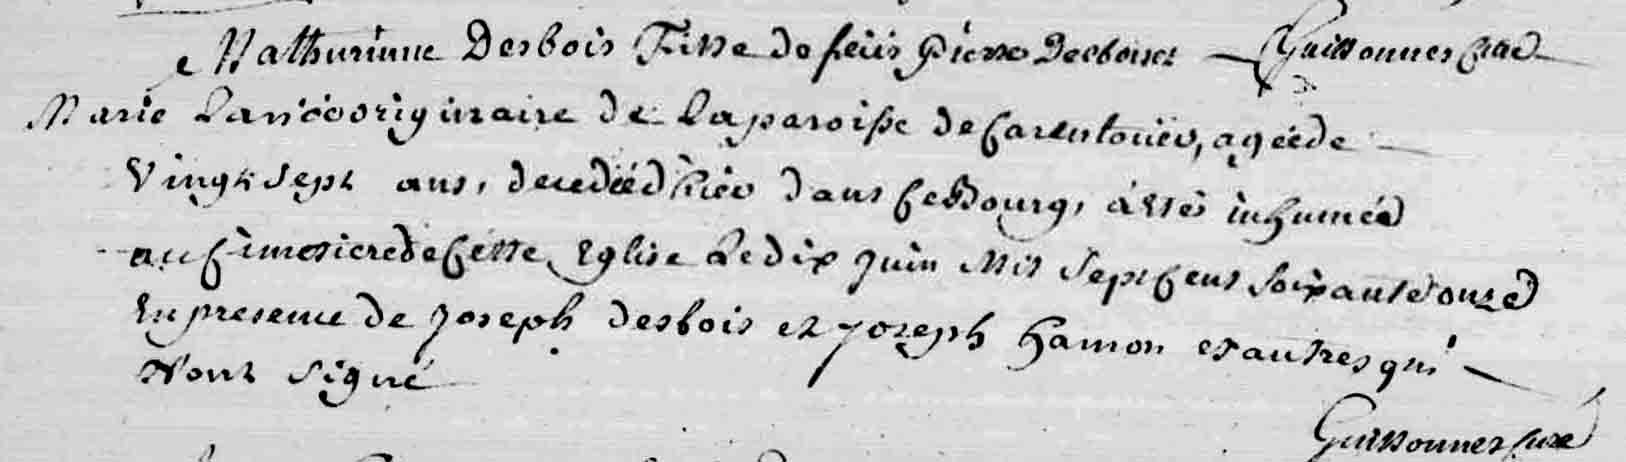 Mathurinne Desbois Fille de feüs Pierre Desbois et — Guillonner Curé
Marie originaire de La paroisse de Carentoüer, agéede
Vingt Sept ans, decedéed hier dans ceBourg, a Eté inhumée
au Cimetierede Cette Eglise Le dix Juin Mil Sept Cent Soixante onze
En presence de Joseph desbois et Joseph hamon et autres qui
N'ont Signé
Guillonner Curé